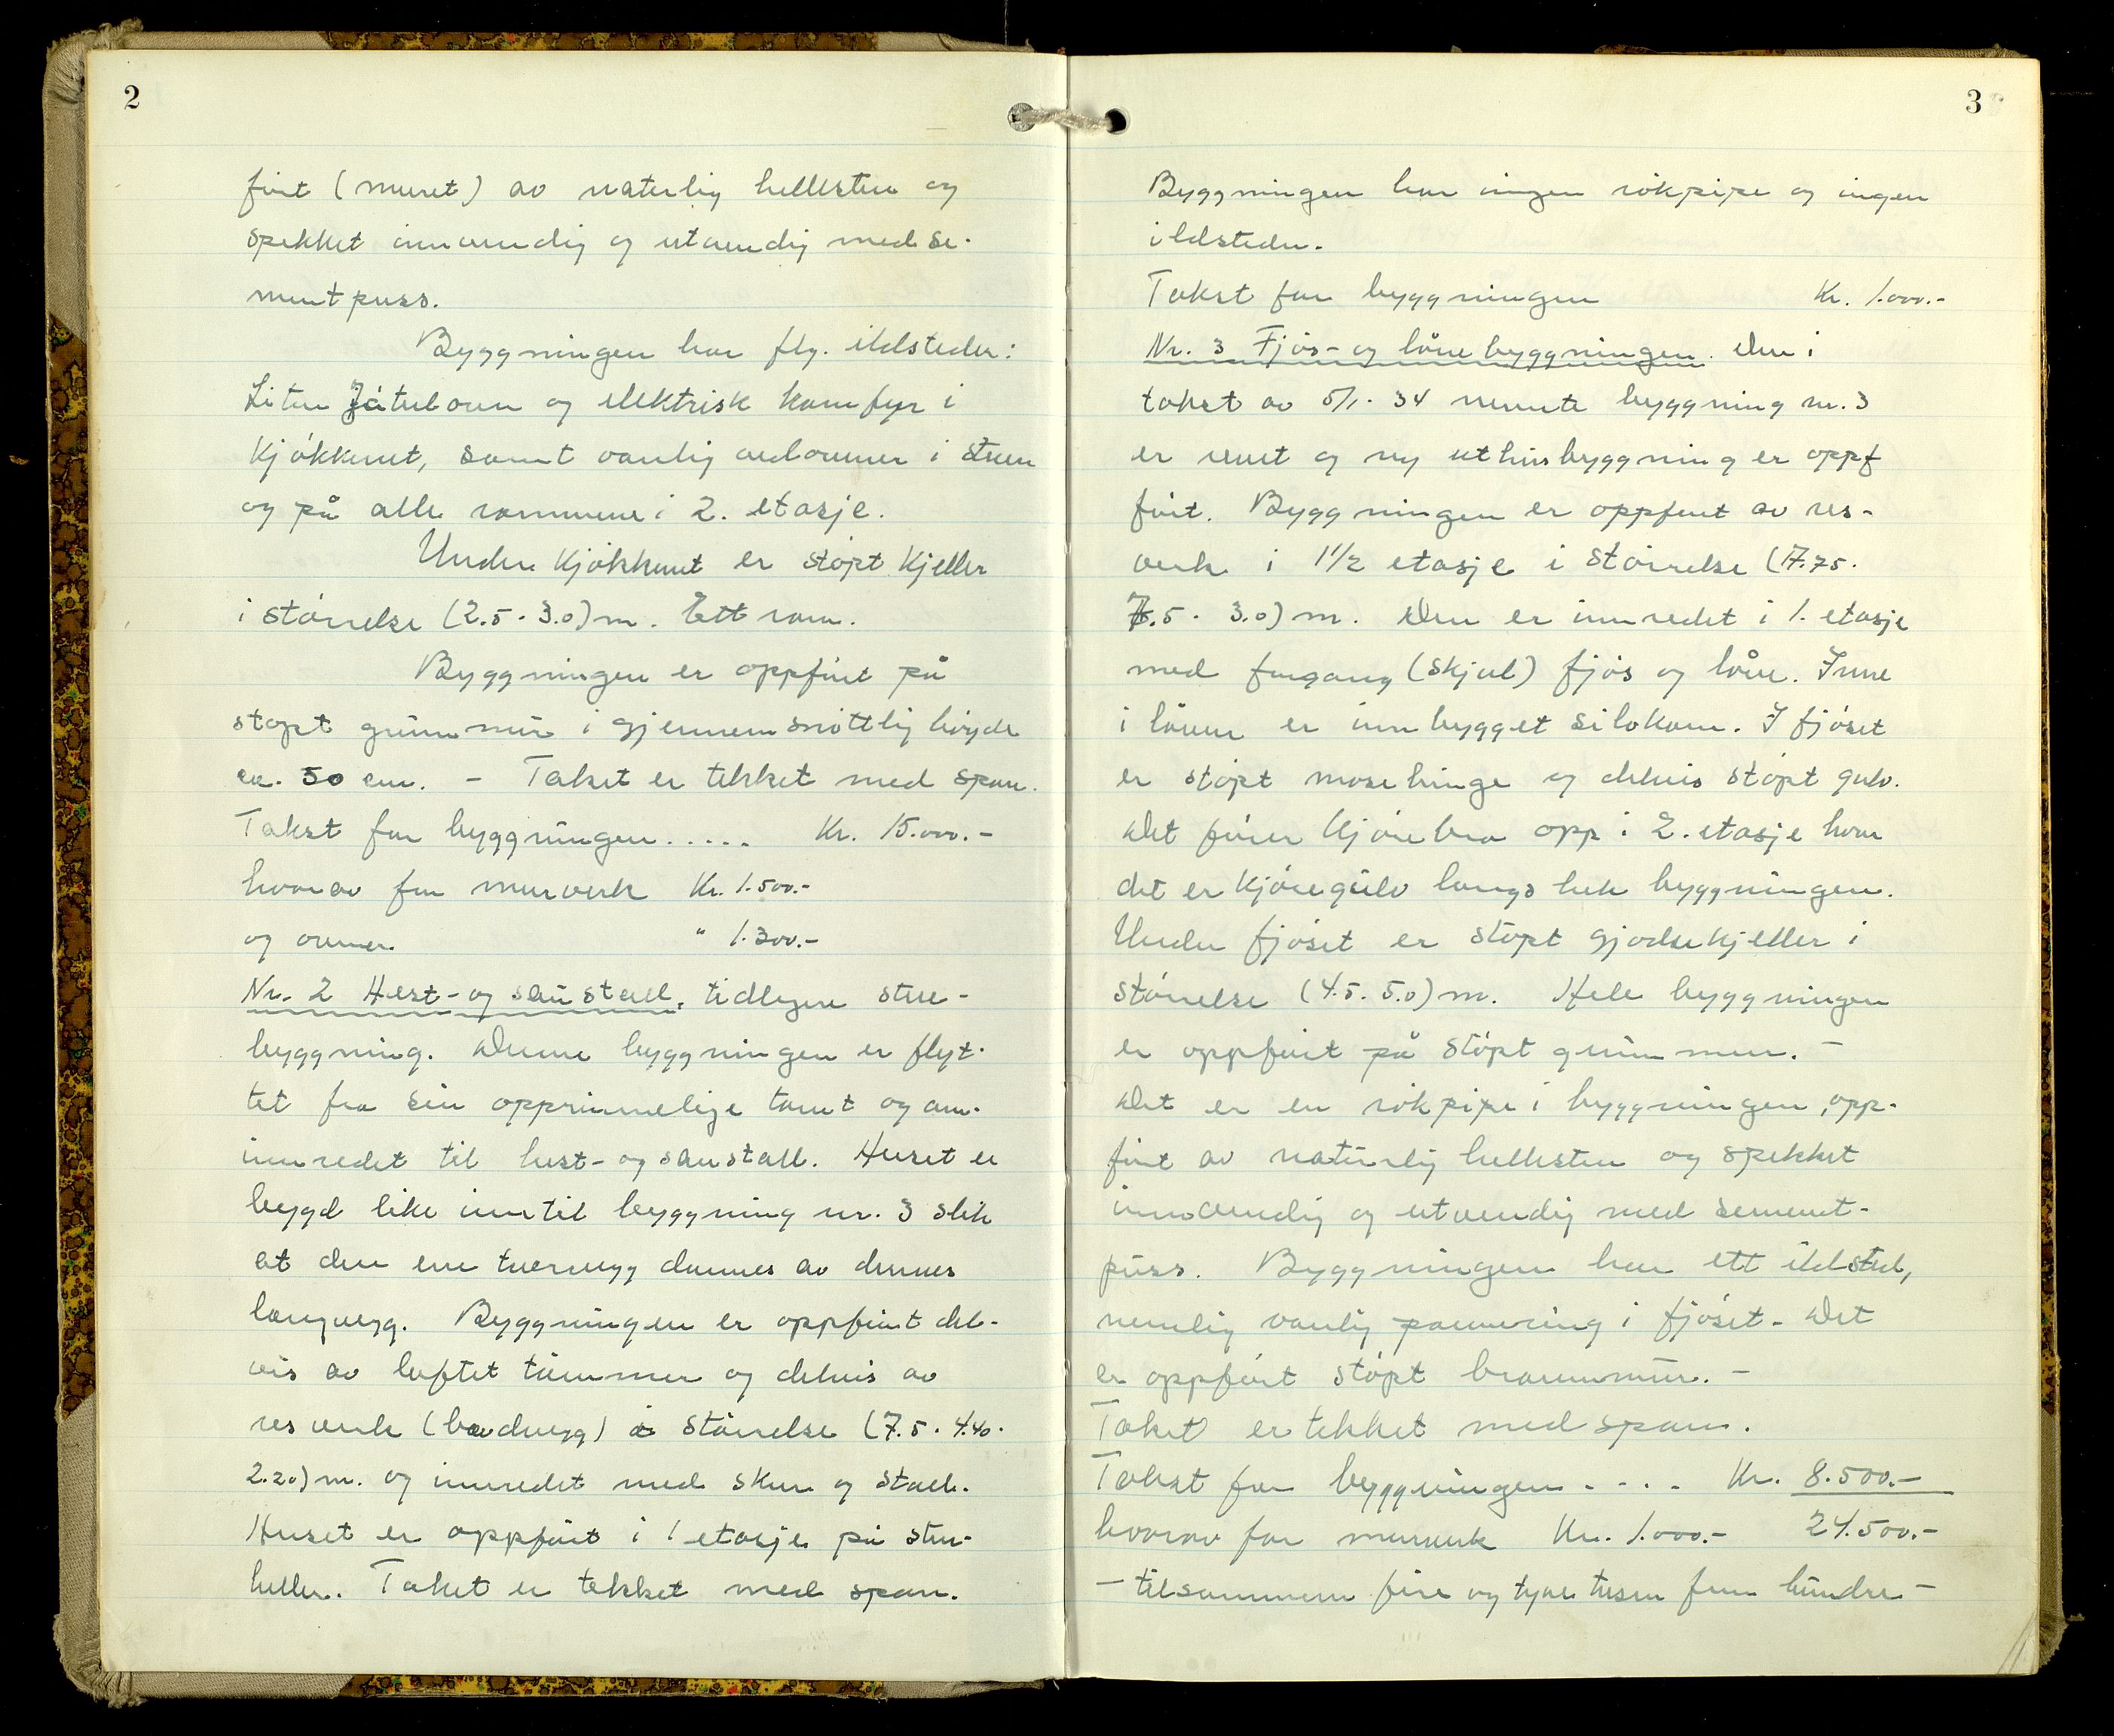 2
ført (muret) av naturlig hellesten og
spekket innvendig og utvendig med se-
mentpuss.
Byggningen har flg. ildsteder:
Liten Jøtulovn og elektrisk komfyr i
kjøkkenet, samt vanlig vedovner i stuen
og på alle rommene i 2. etasje.
Under kjøkkenet er støpt kjeller
i størrelse (2.5 · 3.0) m. Ett rom.
Byggningen er oppført på
støpt grunnmur i gjennemsnittlig høyde
ca. 50 cm. - Taket er tekket med spon.
Takst for byggningen ..... Kr. 15.000.-
hvorav for murverk Kr. 1.500.-
og ovner " 1.300.-
Nr. 2 Hest- og saustall, tidligere stue-
byggning. Denne byggningen er flyt-
tet fra sin opprinnelige tomt og om-
innredet til hest- og saustall. Huset er
bygd like inntil byggning nr. 3 slik
at den ene tverrvegg dannes av dennes
langvegg. Byggningen er oppført del-
vis av laftet tømmer og delvis av
resverk (bordvegg) i størrelse (7.5 · 4.40 ·
2.20) m. og innredet med skur og stall.
Huset er oppført i 1 etasje på sten-
heller. Taket er tekket med spon.
3
Byggningen har ingen røkpipe og ingen
ildsteder.
Takst for byggningen Kr. 1.000.-
Nr. 3 Fjøs- og løebyggningen. Den i
takst av 5/1- 34 nevnte byggning nr. 3
er revet og ny uthusbyggning er oppf
ført. Byggningen er oppført av res-
verk i 1 1/2 etasje i størrelse (17.75 ·
7.5 · 3.0) m. Den er innredet i 1. etasje
med forgang (skjul) fjøs og løe. Inne
i løen er innbygget silokum. I fjøset
er støpt mosebinge og delvis støpt gulv.
Det fører kjørebru opp i 2. etasje hvor
det er kjøregulv langs hele byggningen.
Under fjøset er støpt gjødselkjeller i
størrelse (4.5 · 5.0) m. Hele byggningen
er oppført på støpt grunnmur. -
Det er en røkpipe i byggningen, opp-
ført av naturlig hellesten og spekket
innvendig og utvendig med sement-
puss. Byggningen har ett ildsted,
nemlig vanlig pannering i fjøset. Det
er oppført støpt brannmur. -
Taket er tekket med spon.
Takst for byggningen .... Kr. 8.500.-
hvorav for murverk Kr. 1.000.- 24.500.-
- tilsammen fire og tyve tusen fem hundre -